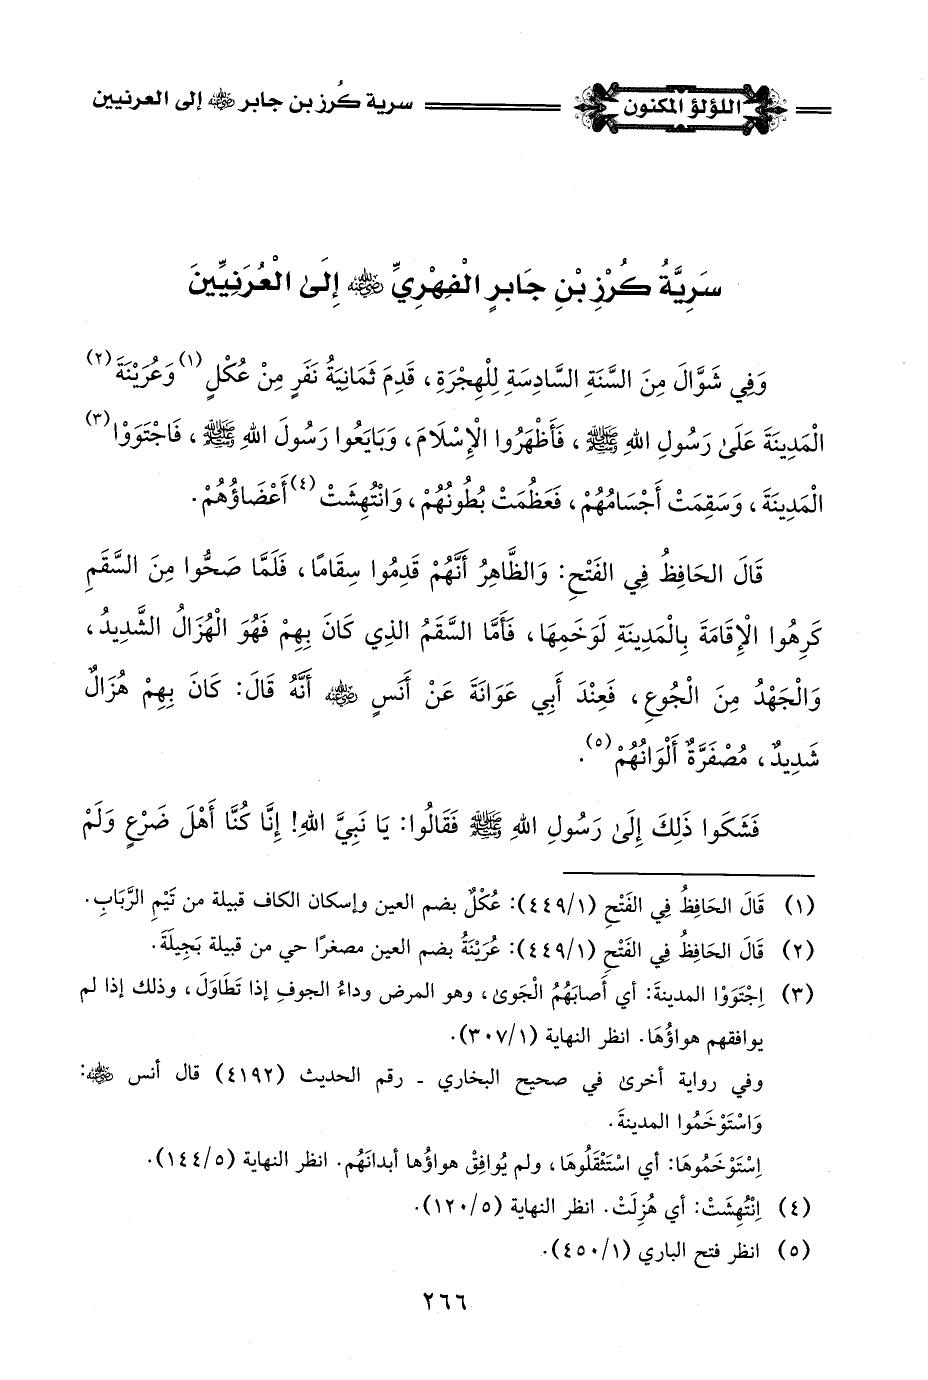 اللؤلؤ المكنون
سرية كُرز بن جابر رضي الله عنه إلى العرنيين
سَرِيَّةُ كُرْزِ بْنِ جَابِرٍ الْفِهْرِيِّ رضي الله عنه إِلَى الْعُرَنِيِّينَ
وَفِي شَوَّالَ مِنَ السَّنَةِ السَّادِسَةِ لِلْهِجْرَةِ، قَدِمَ ثَمَانِيَةُ نَفَرٍ مِنْ عُكْلٍ (١) وَعُرَيْنَةَ (٢)
الْمَدِينَةَ عَلَىٰ رَسُولِ اللهِ ﷺ، فَأَظْهَرُوا الْإِسْلَامَ، وَبَايَعُوا رَسُولَ اللهِ ﷺ، فَاجْتَوَوْا (٣)
الْمَدِينَةَ، وَسَقِمَتْ أَجْسَامُهُمْ، فَعَظُمَتْ بُطُونُهُمْ، وَانْتُهِشَتْ (٤) أَعْضَاؤُهُمْ.
قَالَ الحَافِظُ فِي الفَتْحِ: وَالظَّاهِرُ أَنَّهُمْ قَدِمُوا سِقَامًا، فَلَمَّا صَحُّوا مِنَ السَّقَمِ
كَرِهُوا الْإِقَامَةَ بِالْمَدِينَةِ لِوَخَمِهَا، فَأَمَّا السَّقَمُ الذِي كَانَ بِهِمْ فَهُوَ الْهُزَالُ الشَّدِيدُ،
وَالْجَهْدُ مِنَ الْجُوعِ، فَعِنْدَ أَبِي عَوَانَةَ عَنْ أَنَسٍ رضي الله عنه أَنَّهُ قَالَ: كَانَ بِهِمْ هُزَالٌ
شَدِيدٌ، مُصْفَرَّةٌ أَلْوَانُهُمْ (٥).
فَشَكَوا ذَلِكَ إِلَىٰ رَسُولِ اللهِ ﷺ فَقَالُوا: يَا نَبِيَّ اللهِ! إِنَّا كُنَّا أَهْلَ ضَرْعٍ وَلَمْ
(١) قَالَ الحَافِظُ فِي الفَتْحِ (٤٤٩/١): عُكْلٌ بضم العين وإسكان الكاف قبيلة من تَيْمِ الرَّبَابِ.
(٢) قَالَ الحَافِظُ فِي الفَتْحِ (٤٤٩/١): عُرَيْنَةُ بضم العين مصغرًا حي من قبيلة بَجِيلَةَ.
(٣) اِجْتَوَوْا المدينةَ: أي أَصابَهُمُ الْجَوىٰ، وهو المرض وداءُ الجوفِ إذا تَطَاوَلَ، وذلك إذا لم
يوافقهم هواؤُهَا. انظر النهاية (٣٠٧/١).
وفي رواية أخرىٰ في صحيح البخاري - رقم الحديث (٤١٩٢) قال أنس رضي الله عنه:
وَاسْتَوْخَمُوا المدينةَ.
اِسْتَوْخَمُوهَا: أي اسْتَثْقَلُوهَا، ولم يُوافِقْ هواؤُها أبدانَهُم. انظر النهاية (١٤٤/٥).
(٤) اِنْتُهِشَتْ: أي هُزِلَتْ. انظر النهاية (١٢٠/٥).
(٥) انظر فتح الباري (٤٥٠/١).
٢٦٦